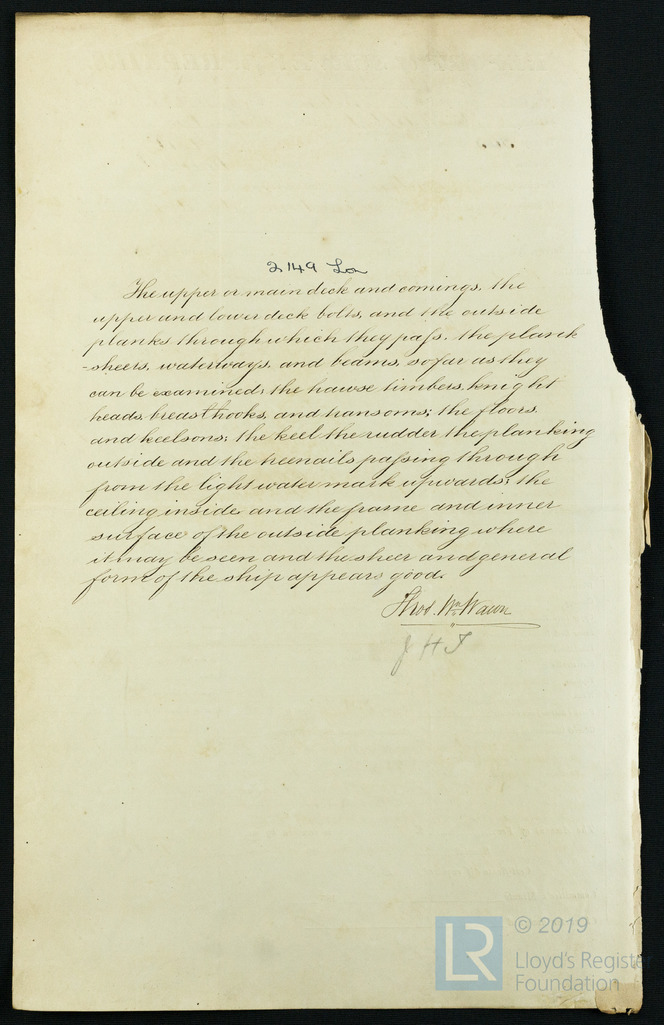 2149 Lon
The upper or main deck and comings, the
upper and lower deck bolts, and the outside
planks through which they pass. the plank
-sheers, waterways, and beams, so far as they
can be examined, the hawse timbers, knight
heads breasthooks, and transoms; the floors
and keelsons; the keel the rudder the planking
outside and the treenails passing through
from the light water mark upwards; the
ceiling inside and the frame and inner
surface of the outside planking where
it may be seen and the sheer and general
form of the ship appears good.
Thos. Wm. Wawn
J H T
LR
© 2019
Lloyd's Register
Foundation